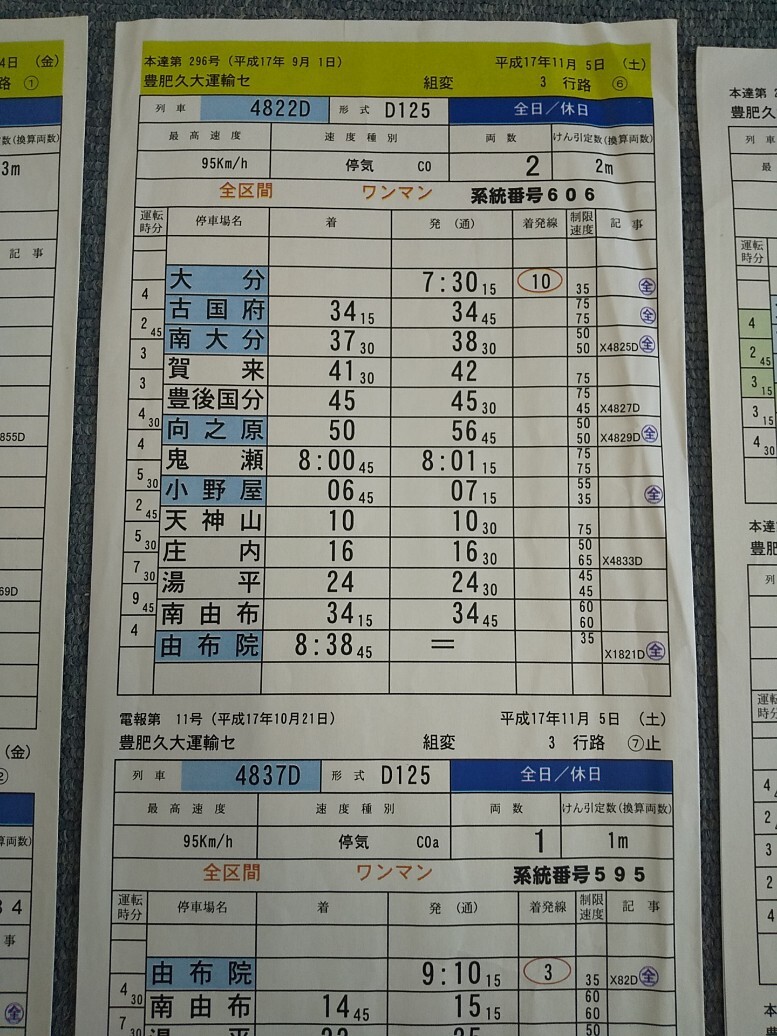 本達第 296号（平成17年 9月 1日） 平成17年11月 5日 （土）
豊肥久大運輸セ 組変 3 行路 ⑥
列 車 4822D 形 式 D125 全日／休日
最 高 速 度 速 度 種 別 両 数 けん引定数(換算両数)
95Km/h 停気 C0 2 2m
全区間 ワンマン 系統番号606
運転時分 停車場名 着 発 （通） 着発線 制限速度 記 事
大 分 7:30 15 10 35 全
4
古国府 34 15 34 45 75 75 全
2 45
南大分 37 30 38 30 50 50 X4825D 全
3
賀 来 41 30 42 75
3
豊後国分 45 45 30 75 45 X4827D
4 30
向之原 50 56 45 50 50 X4829D 全
4
鬼 瀬 8:00 45 8:01 15 75 75
5 30
小野屋 06 45 07 15 55 35 全
2 45
天神山 10 10 30 75
5 30
庄 内 16 16 30 50 65 X4833D
7 30
湯 平 24 24 30 45 45
9 45
南由布 34 15 34 45 60 60
4
由布院 8:38 45 ＝ 35 X1821D 全
電報第 11号（平成17年10月21日） 平成17年11月 5日 （土）
豊肥久大運輸セ 組変 3 行路 ⑦止
列 車 4837D 形 式 D125 全日／休日
最 高 速 度 速 度 種 別 両 数 けん引定数(換算両数)
95Km/h 停気 C0a 1 1m
全区間 ワンマン 系統番号595
運転時分 停車場名 着 発 （通） 着発線 制限速度 記 事
由布院 9:10 15 3 35 X82D 全
4 30
南由布 14 45 15 15 60 60
7 30
湯 平
4日 （金）
路 ①
数(換算両数)
3m
記 事
855D
69D
（金）
②
算両数)
34
事
全
本達第
豊肥
列 車
最
運転時分
4
2 45
3 15
3 15
4 30
本達
豊肥
列
運転時分
4
2
3
2
4
本